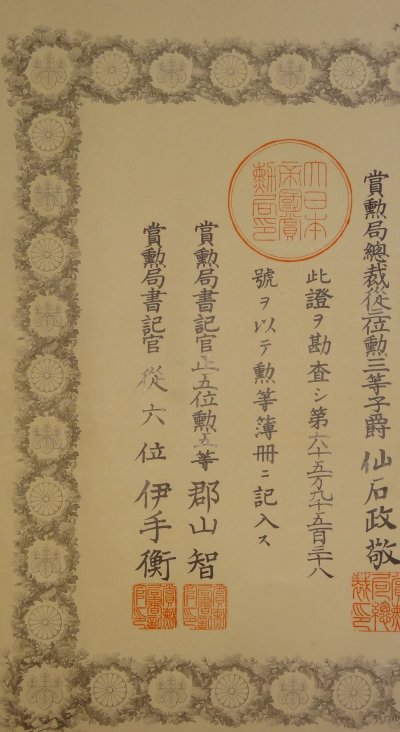 賞勲局總裁從三位勲三等子爵 仙石政敬
此證ヲ勘査シ第六十五万九千五百三十八
號ヲ以テ勲等簿冊ニ記入ス
賞勲局書記官正五位勲五等 郡山智
賞勲局書記官 從六位 伊手衡
大日本
帝國賞
勲局印